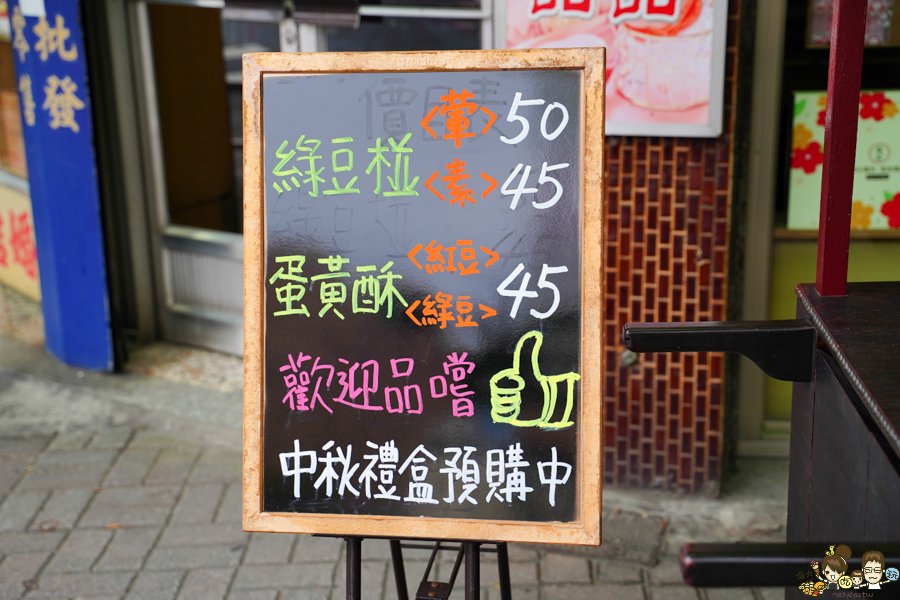 批發
零售
品品
綠豆椪 <葷> 50
<素> 45
蛋黃酥 <紅豆> 45
<綠豆>
歡迎品嚐
中秋禮盒預購中